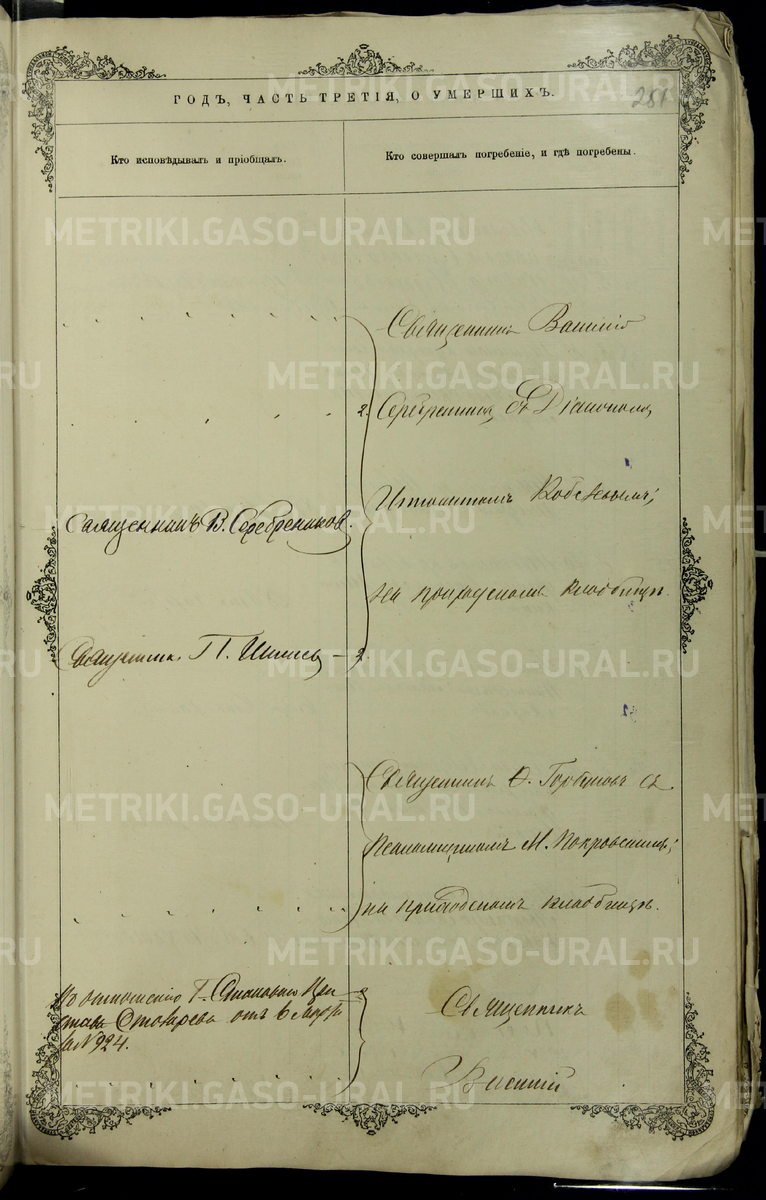 281
ГОДЪ, ЧАСТЬ ТРЕТІЯ, О УМЕРШИХЪ.
Кто исповѣдывалъ и пріобщалъ.
Кто совершалъ погребеніе, и гдѣ погребены.
Священникъ В. Серебрениковъ.
Священникъ П.
По отношенію Г. Становаго При
става отъ 6 Марта
за № 924.
Священникъ Василій
съ Діакономъ
на приходскомъ кладбищѣ.
Священникъ Ѳ. Горбуновъ съ
Псаломщикомъ М. Покровскимъ;
на приходскомъ кладбищѣ.
Священникъ
Василій
METRIKI.GASO-URAL.RU